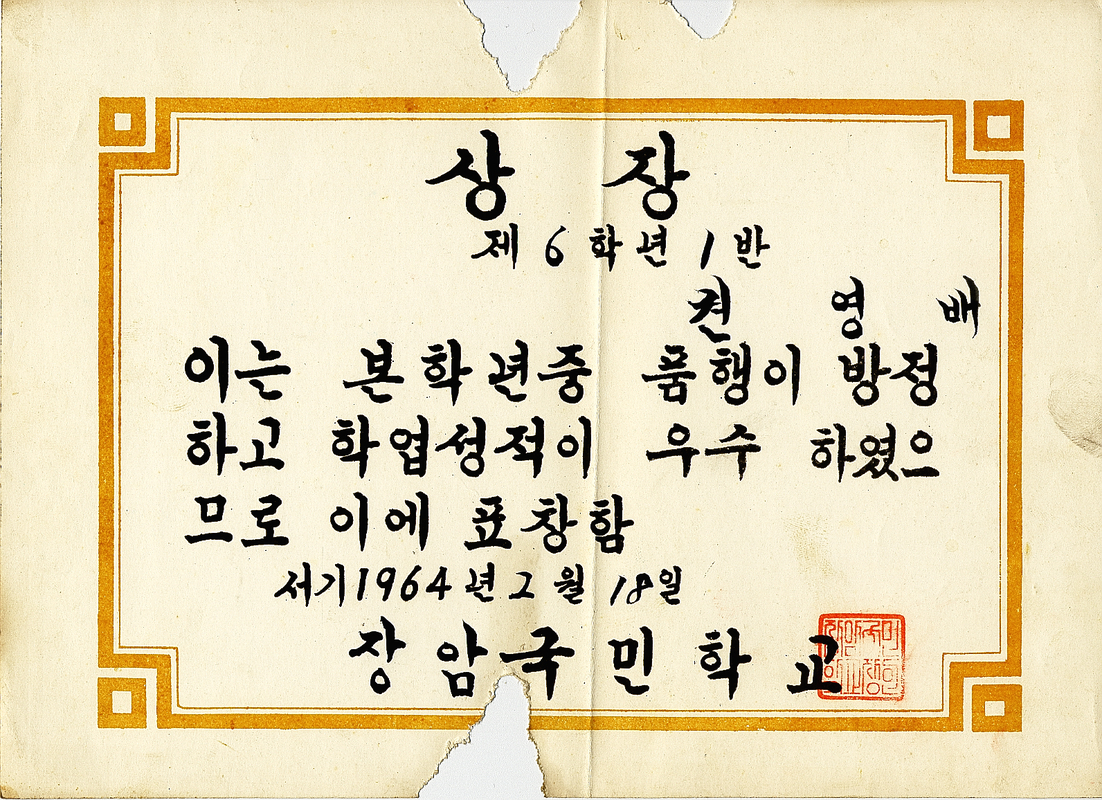 상 장
제 6 학년 1 반
권 영 배
이는 본학년중 품행이 방정
하고 학업성적이 우수 하였으
므로 이에 표창함
서기1964년 2월 18일
장암국민학교